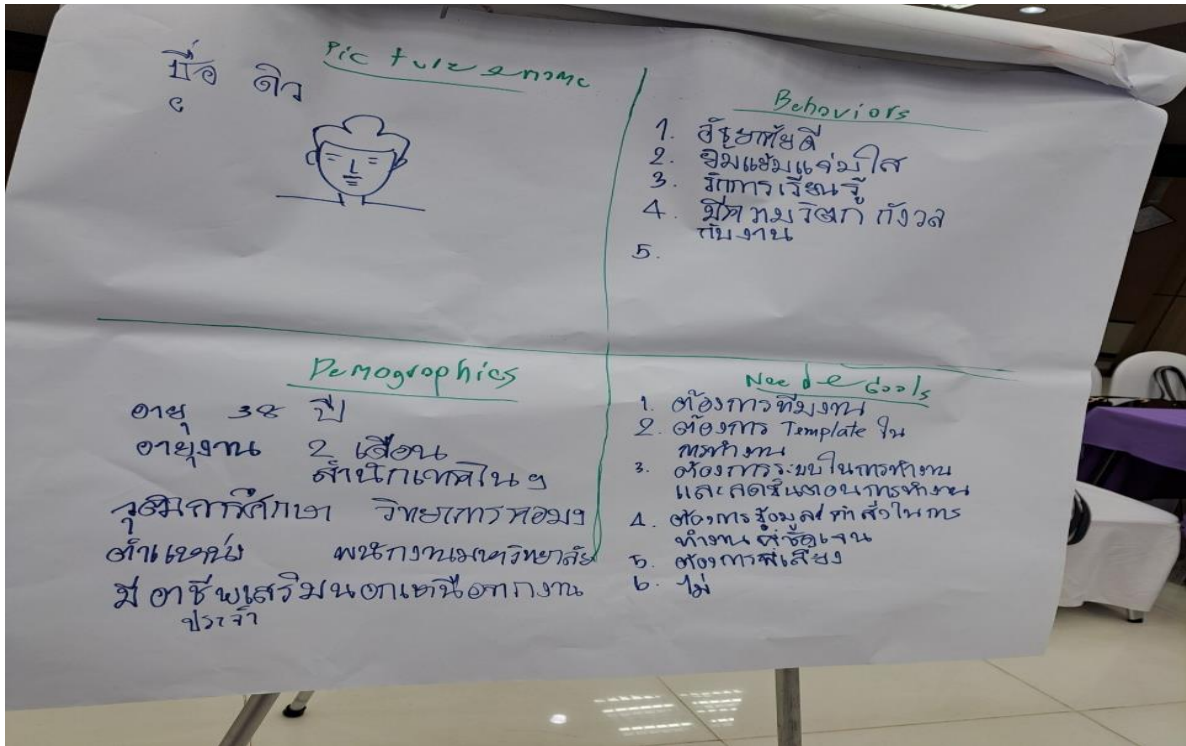 Picture & name
ชื่อ ดิว
Behaviors
1. อัธยาศัยดี
2. ยิ้มแย้มแจ่มใส
3. รักการเรียนรู้
4. มีความวิตก กังวล
กับงาน
5.
Demographics
อายุ 38 ปี
อายุงาน 2 เดือน
สำนักเทคโนฯ
วุฒิการศึกษา วิทยาการคอมฯ
ตำแหน่ง พนักงานมหาวิทยาลัย
มีอาชีพเสริมนอกเหนือจากงาน
ประจำ
Need & Goals
1. ต้องการทีมงาน
2. ต้องการ Template ใน
การทำงาน
3. ต้องการระบบในการทำงาน
และลดขั้นตอนการทำงาน
4. ต้องการข้อมูล/คำสั่งในการ
ทำงาน ที่ชัดเจน
5. ต้องการพี่เลี้ยง
6. ไม่